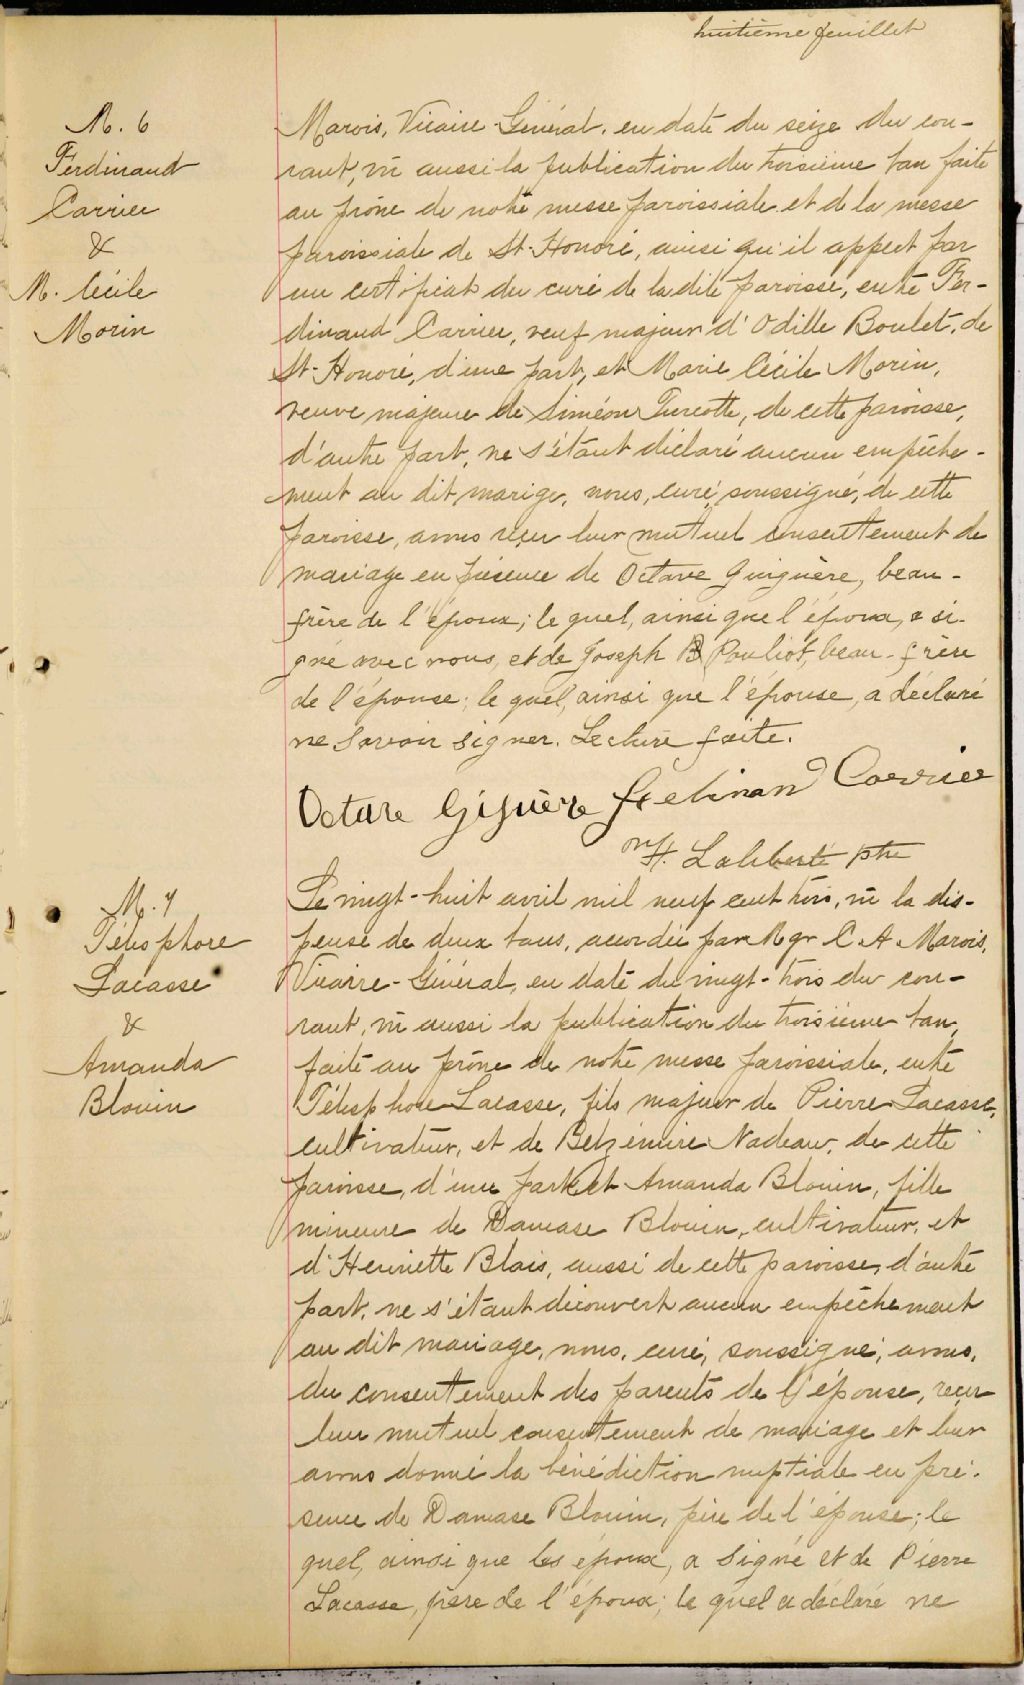 huitième feuillet
M. 6
Ferdinand
Carrier
&
M. Cécile
Morin
Marois, Vicaire-Général, en date du seize du cou-
rant, vu aussi la publication du troisième ban faite
au prône de notre messe paroissiale et de la messe
paroissiale de St-Honoré, ainsi qu'il appert par
un certificat du curé de la dite paroisse, entre Fer-
dinand Carrier, veuf majeur d'Odille Boulet, de
St-Honoré, d'une part, et Marie Cécile Morin,
veuve majeure de Siméon Turcotte, de cette paroisse,
d'autre part, ne s'étant déclaré aucun empêche-
ment au dit marige, nous, curé, soussigné, de cette
paroisse, avons reçu leur mutuel consentement de
mariage en présence de Octave Guiguère, beau-
frère de l'époux; le quel, ainsi que l'époux, a si-
gné avec nous, et de Joseph B Pouliot, beau-frère
de l'épouse; le quel, ainsi que l'épouse, a déclaré
ne savoir signer. Lecture faite.
Octave Giguère Ferdinand Carrier
H. Laliberté ptre
M. 7
Télesphore
Lacasse
&
Amanda
Blouin
Le vingt-huit avril mil neuf cent trois, vu la dis-
pense de deux bans, accordée par Mgr C. A. Marois,
Vicaire-Général, en date du vingt-trois du cou-
rant, vu aussi la publication du troisième ban,
faite au prône de notre messe paroissiale, entre
Télesphore Lacasse, fils majeur de Pierre Lacasse,
cultivateur, et de Belzémire Nadeau, de cette
paroisse, d'une part, et Amanda Blouin, fille
mineure de Damase Blouin, cultivateur, et
d'Henriette Blais, aussi de cette paroisse, d'autre
part, ne s'étant découvert aucun empêchement
au dit mariage, nous, curé, soussigné, avons,
du consentement des parents de l'épouse, reçu
leur mutuel consentement de mariage et leur
avons donné la bénédiction nuptiale en pré-
sence de Damase Blouin, père de l'épouse; le
quel, ainsi que les époux, a signé et de Pierre
Lacasse, père de l'époux; le quel a déclaré ne